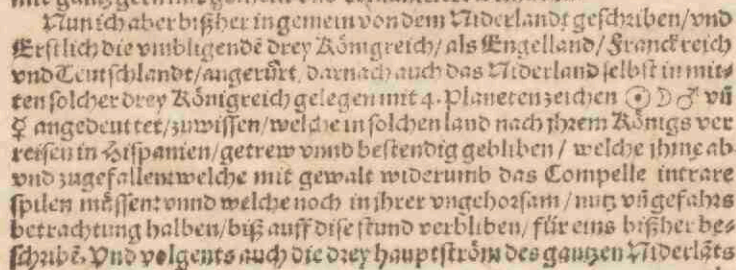 Nun ich aber bißher in gemein von dem Niderlandt geschriben/vnd
Erstlich die vmbligendē drey Königreich/als Engelland/Franckreich
vnd Teutschlandt/angerürt, darnach auch das Niderland selbst in mit-
ten solcher drey Königreich gelegen mit 4. Planetenzeichen ☉☽♂ vñ
☿ angedeuttet/zuwissen/welche in solchen land nach jhrem Königs ver
reisen in Hispanien/getrew vnnd bestendig gebliben / welche jhme ab
vnd zugefallen:welche mit gewalt widerumb das Compelle intrare
spilen müssen:vnnd welche noch in jhrer vngehorsam/nutz vñ gefahrs
betrachtung halben/biß auff dise stund verbliben/für eins bißher be-
schribē. Vnd volgents auch die drey hauptström des gantzen Niderlāts